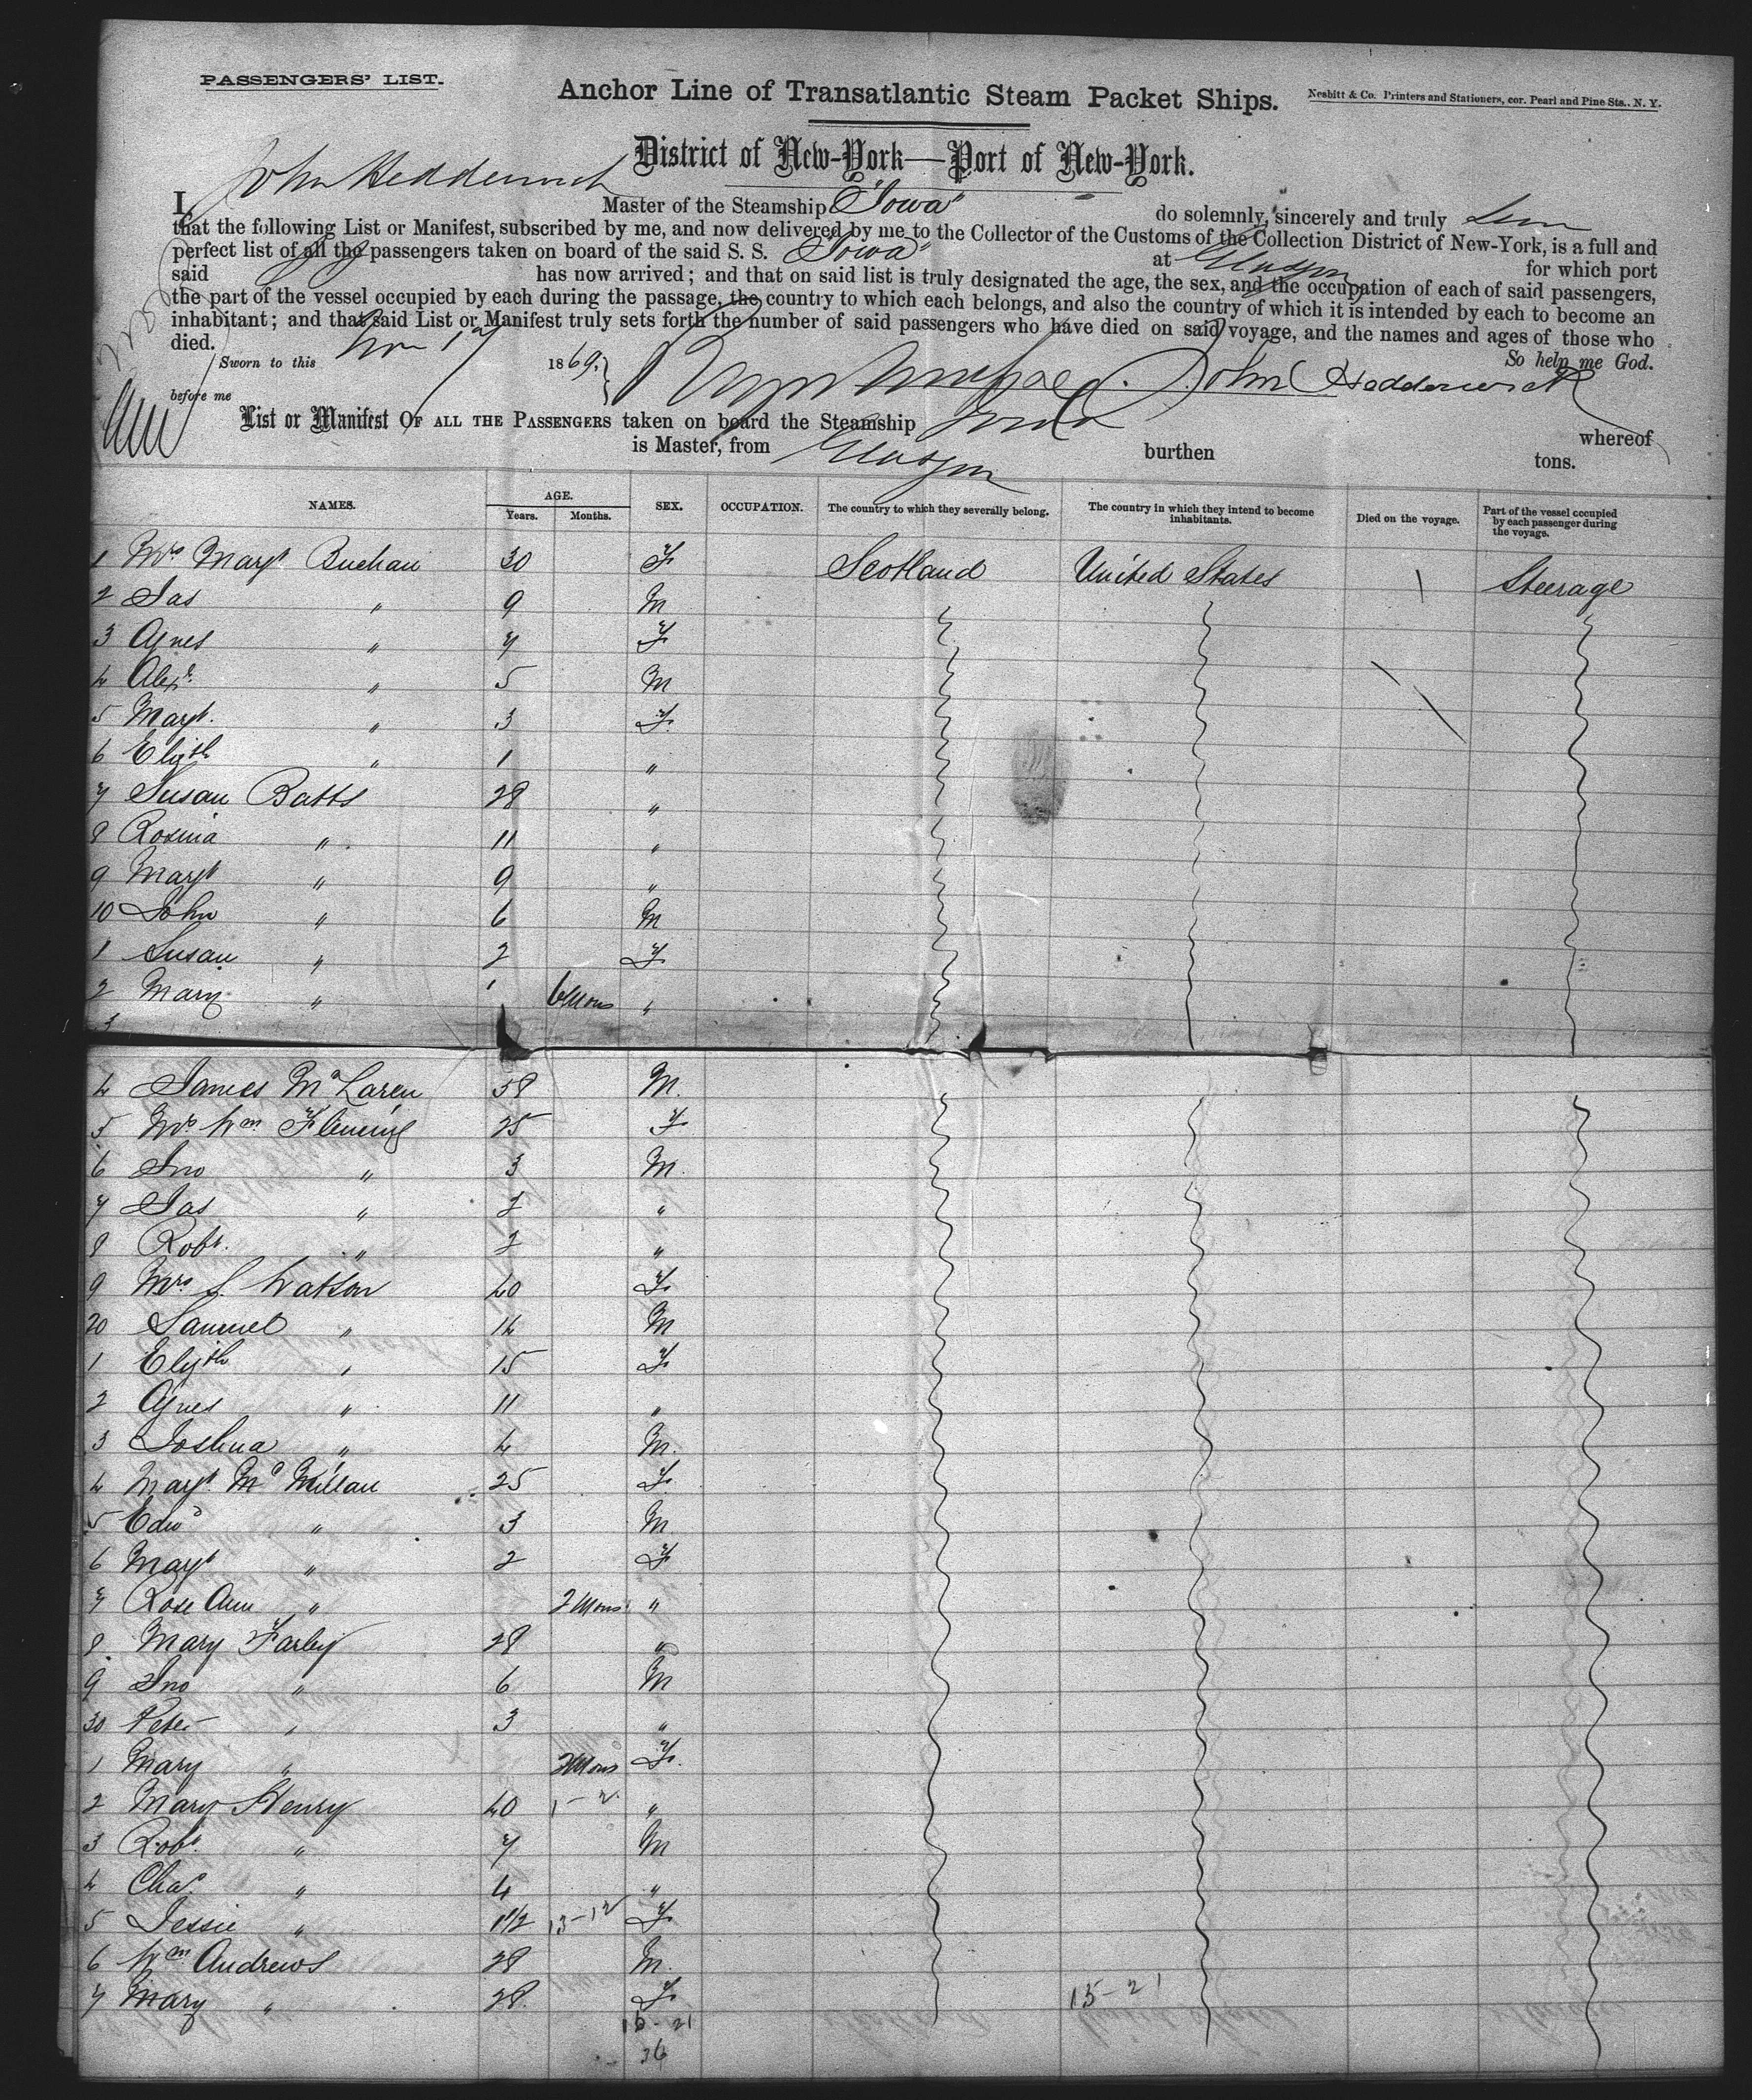 PASSENGERS' LIST.
Anchor Line of Transatlantic Steam Packet Ships.
Nesbitt & Co. Printers and Stationers, cor. Pearl and Pine Sts., N. Y.
District of New-York—Port of New-York.
I, John Hedderwick Master of the Steamship "Iowa" do solemnly, sincerely and truly
that the following List or Manifest, subscribed by me, and now delivered by me to the Collector of the Customs of the Collection District of New-York, is a full and
perfect list of all the passengers taken on board of the said S. S. Iowa at Glasgow for which port
said has now arrived; and that on said list is truly designated the age, the sex, and the occupation of each of said passengers,
the part of the vessel occupied by each during the passage, the country to which each belongs, and also the country of which it is intended by each to become an
inhabitant; and that said List or Manifest truly sets forth the number of said passengers who have died on said voyage, and the names and ages of those who
died. So help me God.
Sworn to this Nov 17 1869. John Hedderwick
before me
List or Manifest OF ALL THE PASSENGERS taken on board the Steamship Iowa whereof
is Master, from Glasgow burthen tons.
NAMES. AGE. Years. Months. SEX. OCCUPATION. The country to which they severally belong. The country in which they intend to become inhabitants. Died on the voyage. Part of the vessel occupied by each passenger during the voyage.
1 Mrs Margt Buchan 30 F Scotland United States Steerage
2 Jas " 9 M
3 Agnes " 7 F
4 Alexr. " 5 M
5 Margt. " 3 F
6 Elizth " 1 "
7 Susan Batts 28 "
8 Rosina " 11 "
9 Margt " 9 "
10 John " 6 M
1 Susan " 2 F
2 Mary " 6 Mons "
3
4 James McLaren 38 M.
5 Mrs Wm Fleming 25 F
6 Jno " 3 M.
7 Jas " 2 "
8 Robt. " 2 "
9 Mrs S. Watson 40 F
20 Samuel " 14 M
1 Elizth " 15 F
2 Agnes " 11 "
3 Joshua " 4 M.
4 Margt McMillan 25 F
5 Edwd " 3 M
6 Margt " 2 F
7 Rose Ann " 2 Mons "
8 Mary Farley 28 "
9 Jno " 6 M
30 Peter " 3 "
1 Mary " 2 Mons F.
2 Mary Henry 40 "
3 Robt. " 7 M
4 Chas. " 4 "
5 Jessie " 1 1/2 13-12 F
6 Wm Andrews 28 M.
7 Mary " 28. F 15-21
15-21
36